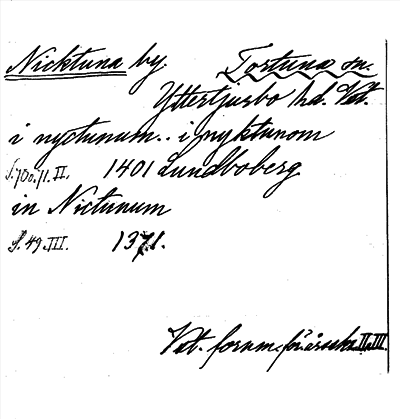 Nicktuna by. Tortuna sn.
Yttertjurbo hd. Vst.
i nyctunum.. i nyktunom
s. 70 o. 71. II. 1401 Lundboberg
in Nictunum
s. 49 III. 1371.
Vst. fornm. för:s årsskr. II, III.